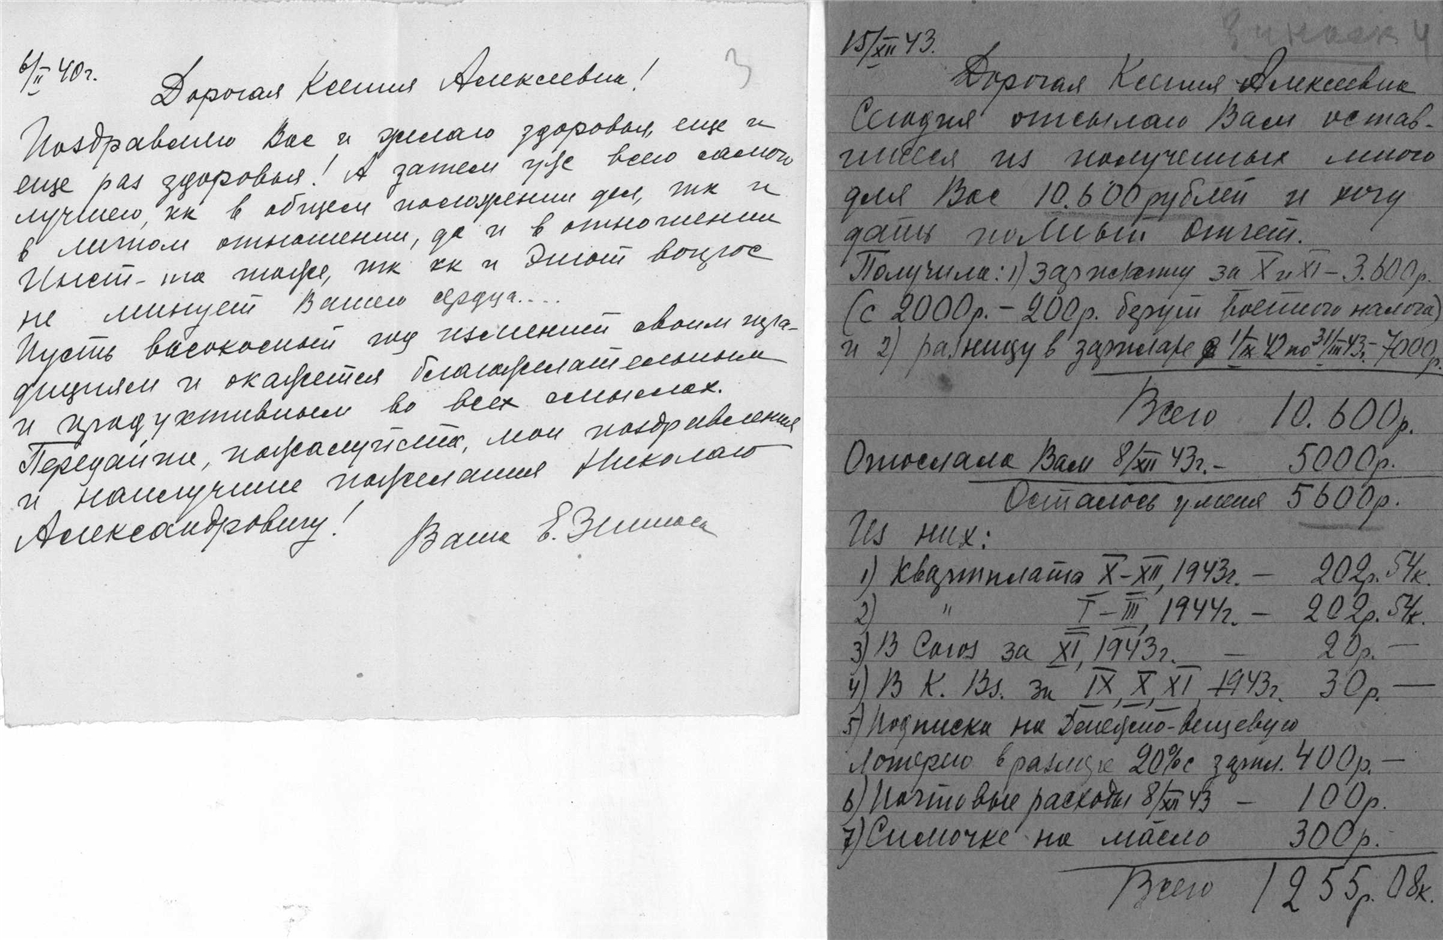 6/II 40г.
3
Дорогая Ксения Алексеевна!
Поздравляю Вас и желаю здоровья, еще и
еще раз здоровья! А затем уже всего самого
лучшего, кк в общем положении дел, тк и
в личном отношении, да и в отношении
Инст-та тоже, тк кк и этот вопрос
не минует Вашего сердца....
Пусть високосный год изменит своим тра-
дициям и окажется благожелательным
и продуктивным во всех смыслах.
Передайте, пожалуйста, мои поздравления
и наилучшие пожелания Николаю
Александровичу!
Ваша Е. Зинова
4
15/XII 43.
Дорогая Ксения Алексеевна
Сегодня отсылаю Вам остав-
шиеся из полученных мною
для Вас 10.600 рублей и хочу
дать полный отчет.
Получила: 1) зарплату за X и XI – 3.600р.
(с 2000р. – 200р. берут военного налога)
и 2) разницу в зарплате с 1/IX 42 по 31/III 43г. – 7000р.
Всего 10.600р.
Отослала Вам 8/XII 43г. – 5000р.
Осталось у меня 5600р.
Из них:
1) Квартплата X–XII, 1943г. – 202р. 54к.
2) " I–III, 1944г. – 202р. 54к.
3) В Союз за XI, 1943г. – 20р. –
4) В К. Вз. за IX, X, XI 1943г. 30р. –
5) Подписка на Денежно-вещевую
лотерею в размере 20% с зарпл. 400р. –
6) Почтовые расходы 8/XII 43 – 100р.
7) Симочке на масло 300р.
Всего 1255р. 08к.